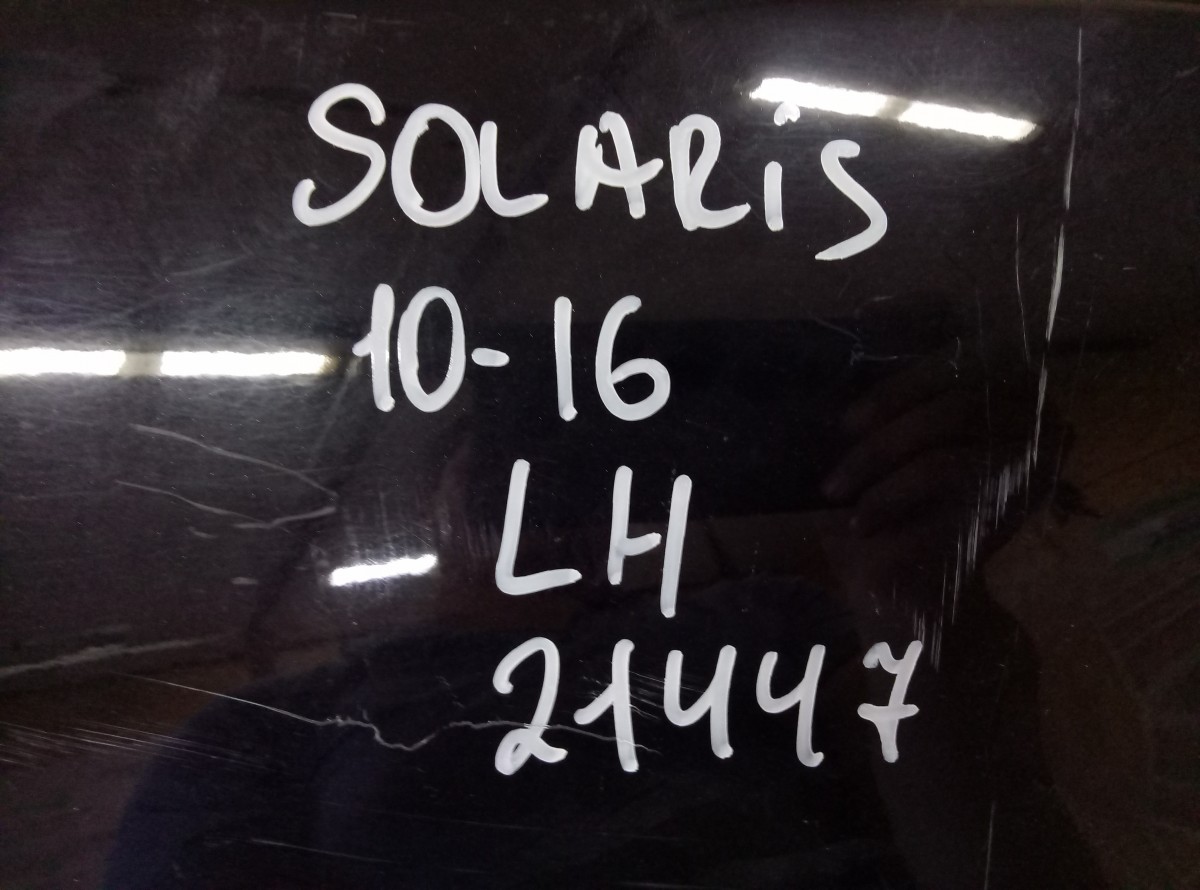 SOLARiS
10-16
LH
21447